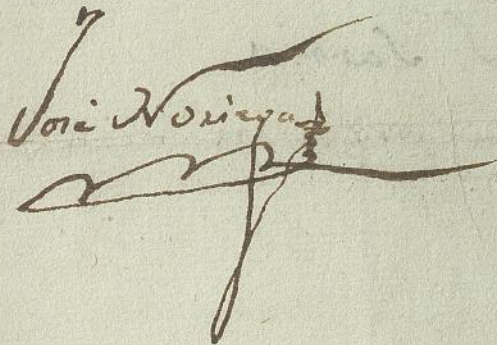 José Noriega